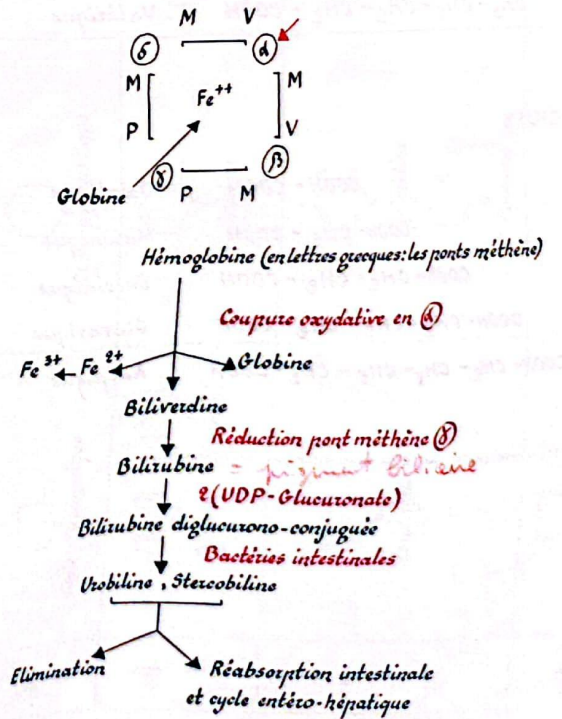 M V
δ α
M Fe⁺⁺ M
P V
γ β
Globine P M
Hémoglobine (en lettres grecques: les ponts méthène)
Coupure oxydative en α
Fe³⁺ Fe²⁺ Globine
Biliverdine
Réduction pont méthène γ
Bilirubine = pigment biliaire
2(UDP-Glucuronate)
Bilirubine diglucurono-conjuguée
Bactéries intestinales
Urobiline, Stercobiline
Elimination Réabsorption intestinale
et cycle entéro-hépatique